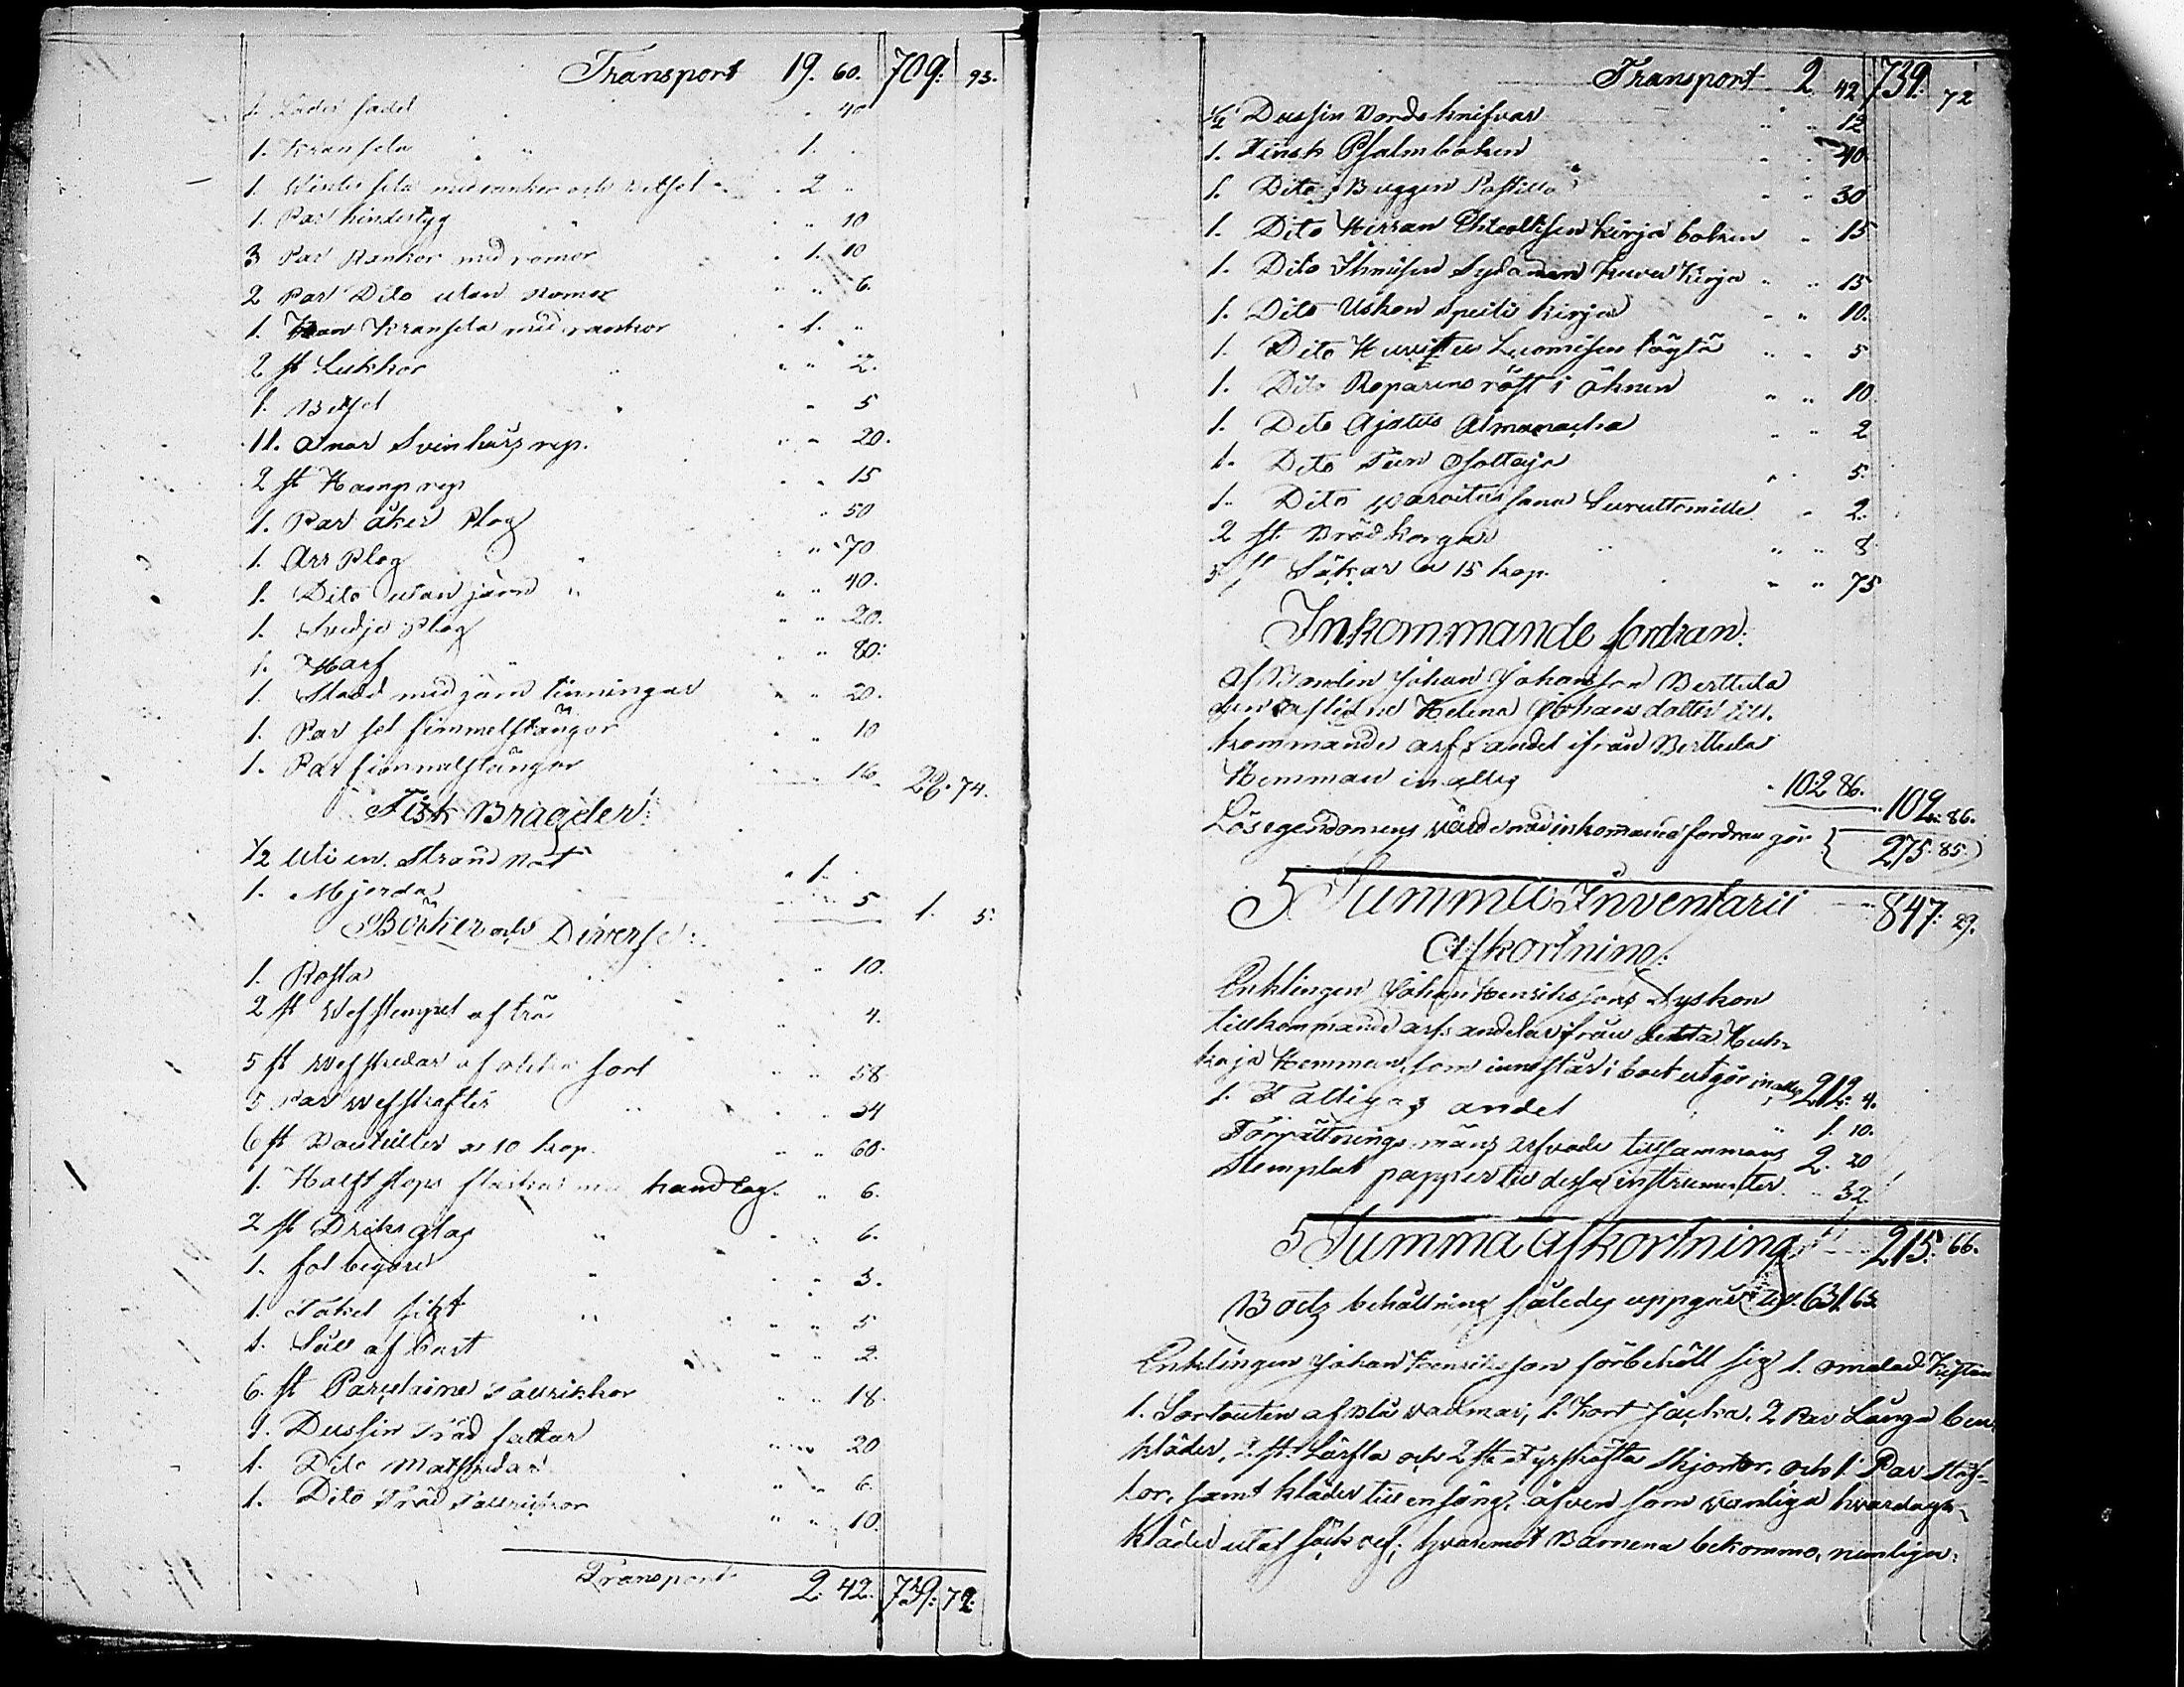 Transport 19. 60. 709: 93.
1. Läder sadel 40
1. Kransela 1.
1. Winter sela med rankor och betsel 2
1. Par hindertyg 10
3 Par Rankor med romor 1. 10
2 Par Dito utan Romor 6.
1. Kransela med rankor 1.
2 st Lukkor 2.
1. Betsel 5
11. amar Svinhårs rep. 20.
2 st Hamp rep 15
1. Par åker Plog 50
1. Arr Plog 70
1. Dito utan järn 40.
1. Svedje Plog 20.
1. Harf 80.
1. Sladd med järn tinningar 20.
1. Par sel fimmelstånger 10
1. Par fimmelstånger 16 28. 74.
Fisk Bragder:
1/2 Uti en Strand Not 1.
1. Mjerda 5 1. 5.
Böcker och Diverse:
1. Rosta 10.
2 st Wefstempel af trä 4.
5 st Wefskedar af olika sort 58
5 Par Wefskafter 34
6 st Bouteiller a 10 kop. 60.
1. Halft stops flaska med handtag 6.
2 st Driks glas 6.
1. fot begare 3.
1. Takel sikt 5
1. Såll af bast 2.
6. st Porcelaine Tallrikkor 18.
1. Dussin Träd fattar 20
1. Dito Matskedar 6.
1. Dito Träd Tallrickor 10.
Transport 2. 42. 739: 72.
Transport 2 42 739: 72
1/2 Dussin Bords knifvar 12
1. Finsk Psalmboken 40
1. Dito Buggen Postilla 30
1. Dito Herran Ehtollisen Kirja boken 15
1. Dito Ihmisen Sydamen Kuva Kirja 15
1. Dito Uskon Speili kirja 10.
1. Dito Huvistus Luomisen töytä 5
1. Dito Roparens röst i öknen 10
1. Dito Ajatus Almanacka 2
1. Dito Tien Osottaja 5.
1. Dito Waroitus sana Suruttomille 2.
2 st Brödkorgar 8
5 st Säkar a 15 kop. 75
Inkommande fordran:
Af Bonden Johan Johansson Berttula
den aflidne Helena Johans dotter till.
kommande arfs andel ifrån Berttula
Hemman in alles 102 86. 102. 86.
Lösegendomens värde med inkommande fordran gör 275: 85.
S Summa Inventarii 847: 29.
Afkortning:
Enklingen Johan Henrikssons Syskon
tillkommande arfs andelar ifrån detta Huh-
kaja Hemman, som innestår i boet utgör in alles 212: 4.
1. Fattigas andel 1. 10.
Förrättnings mäns arfvode tillsammans 2. 20
Stemplat papper till dessa instrumenter 32.
S Summa Afkortning 215: 66.
Boets behållning således uppgår till 631. 63.
Enklingen Johan Henriksson förbehåll sig 1. omalad Kistan
1. Sortouten af blå vadmar, 1. Kort Jacka, 2 Par Långa ben,
kläder, 2 st. Lärfts och 2 st. Fyrskäfta Skjortor, och 1. Par Stöf-
lor, samt kläder till en säng, äfven som vanliga hvardags-
kläder utaf säck väf; hvaremot Barnena bekomma, nemligen: